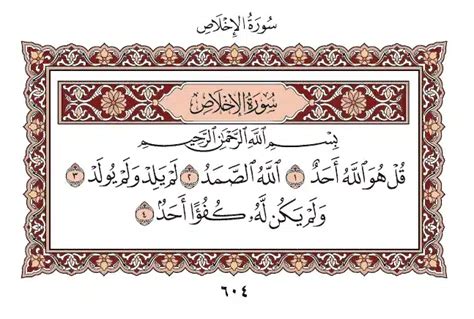 سُورَةُ الإِخْلَاصِ
سُورَةُ الإِخْلَاصِ
بِسْمِ اللَّهِ الرَّحْمَٰنِ الرَّحِيمِ
قُلْ هُوَ اللَّهُ أَحَدٌ ١ اللَّهُ الصَّمَدُ ٢ لَمْ يَلِدْ وَلَمْ يُولَدْ ٣
وَلَمْ يَكُن لَّهُۥ كُفُوًا أَحَدٌۢ ٤
٦٠٤